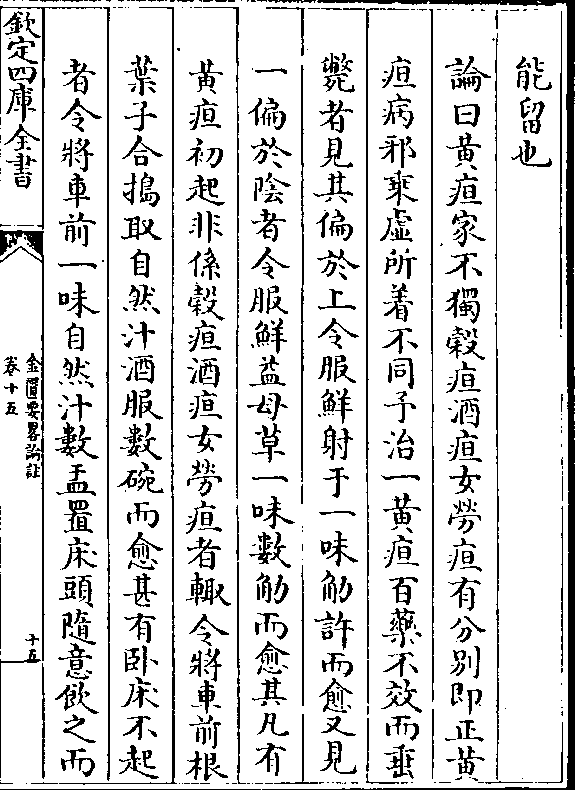 能留也
論曰黄疸家不獨穀疸酒疸女勞疸有分别即正黄
疸病邪乘虛所着不同予治一黄疸百藥不效而垂
斃者見其偏於上令服鮮射干一味觔許而愈又見
一偏於陰者令服鮮益母草一味數觔而愈其凡有
黄疸初起非係穀疸酒疸女勞疸者輙令將車前根
葉子合搗取自然汁酒服數碗而愈甚有卧床不起
者令將車前一味自然汁數盂置床頭隨意飲之而
欽定四庫全書
金匱要畧論註
卷十五
十五